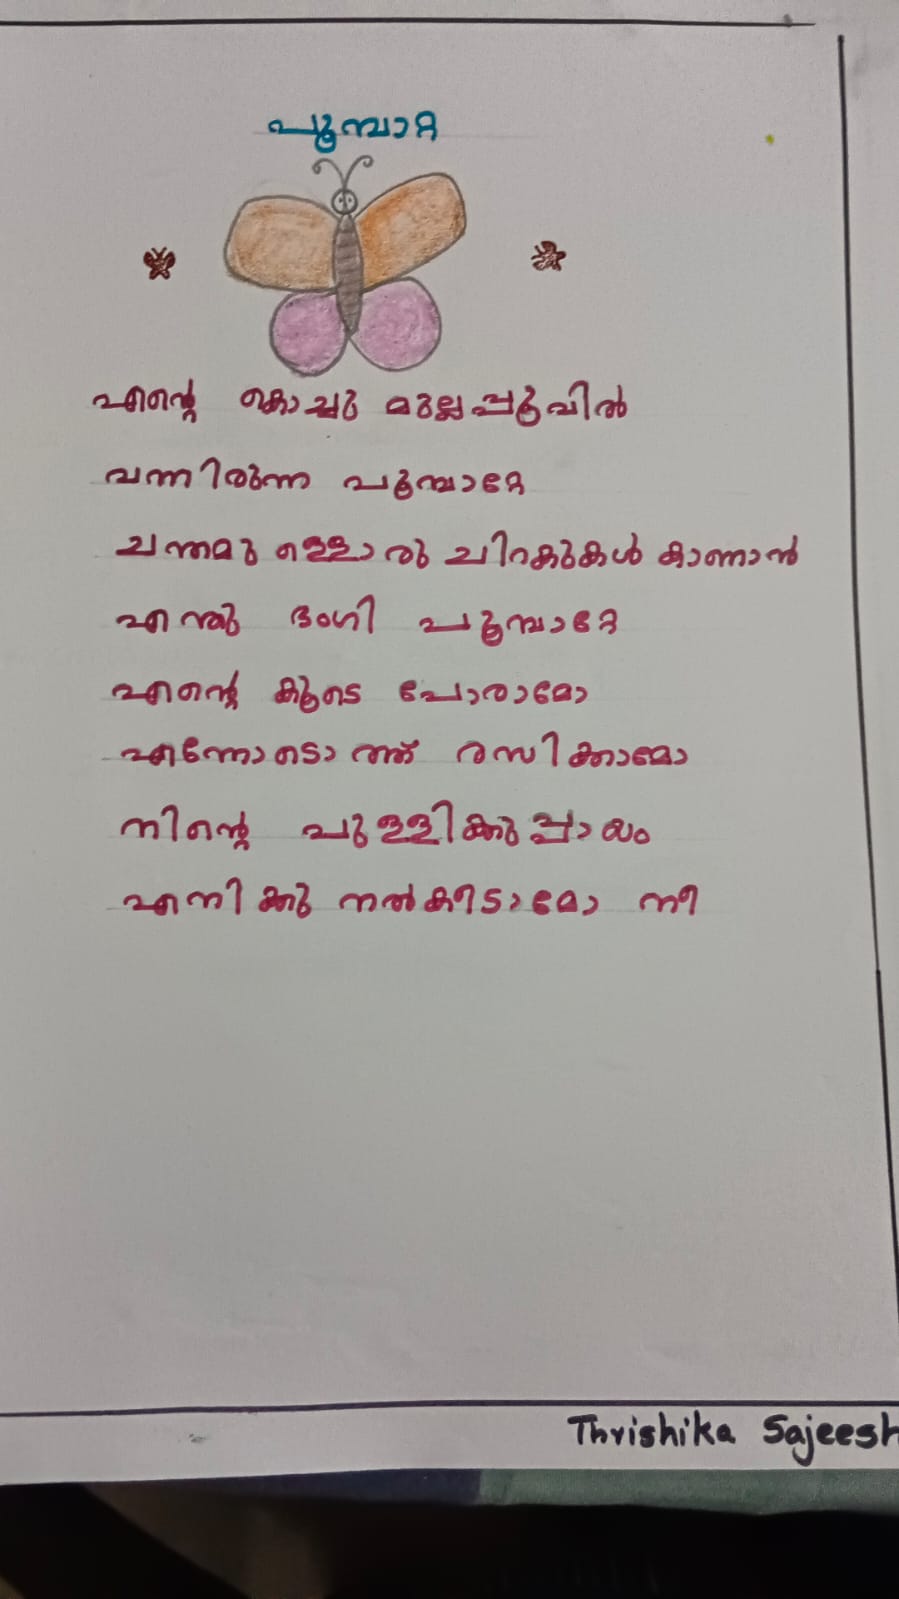 പൂമ്പാറ്റ
എന്റെ കൊച്ചു മുല്ലപ്പൂവിൽ
വന്നിരുന്ന പൂമ്പാറ്റേ
ചന്തമു ള്ളൊരു ചിറകുകൾ കാണാൻ
എന്തു ഭംഗി പൂമ്പാറ്റേ
എന്റെ കൂടെ പോരാമോ
എന്നോടൊ ത്ത് രസിക്കാമോ
നിന്റെ പുള്ളിക്കുപ്പായം
എനിക്കു നൽകീടാമോ നീ
Thrishika Sajeesh